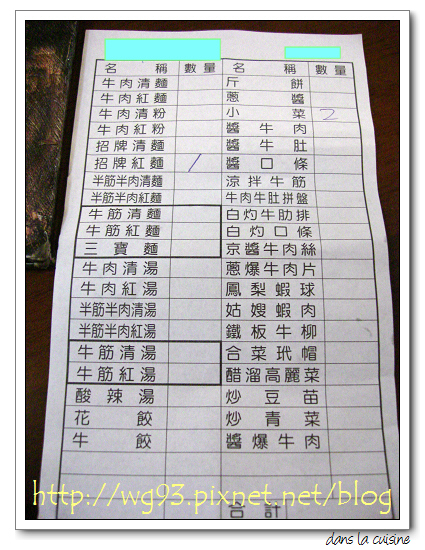 名稱 數量 名稱 數量
牛肉清麵 斤餅
牛肉紅麵 蔥醬
牛肉清粉 小菜 2
牛肉紅粉 醬牛肉
招牌清麵 醬牛肚
招牌紅麵 / 醬口條
半筋半肉清麵 涼拌牛筋
半筋半肉紅麵 牛肉牛肚拼盤
牛筋清麵 白灼牛肋排
牛筋紅麵 白灼口條
三寶麵 京醬牛肉絲
牛肉清湯 蔥爆牛肉片
牛肉紅湯 鳳梨蝦球
半筋半肉清湯 姑嫂蝦肉
半筋半肉紅湯 鐵板牛柳
牛筋清湯 合菜玳帽
牛筋紅湯 醋溜高麗菜
酸辣湯 炒豆苗
花餃 炒青菜
牛餃 醬爆牛肉
http://wg93.pixnet.net/blog
合計
dans la cuisine